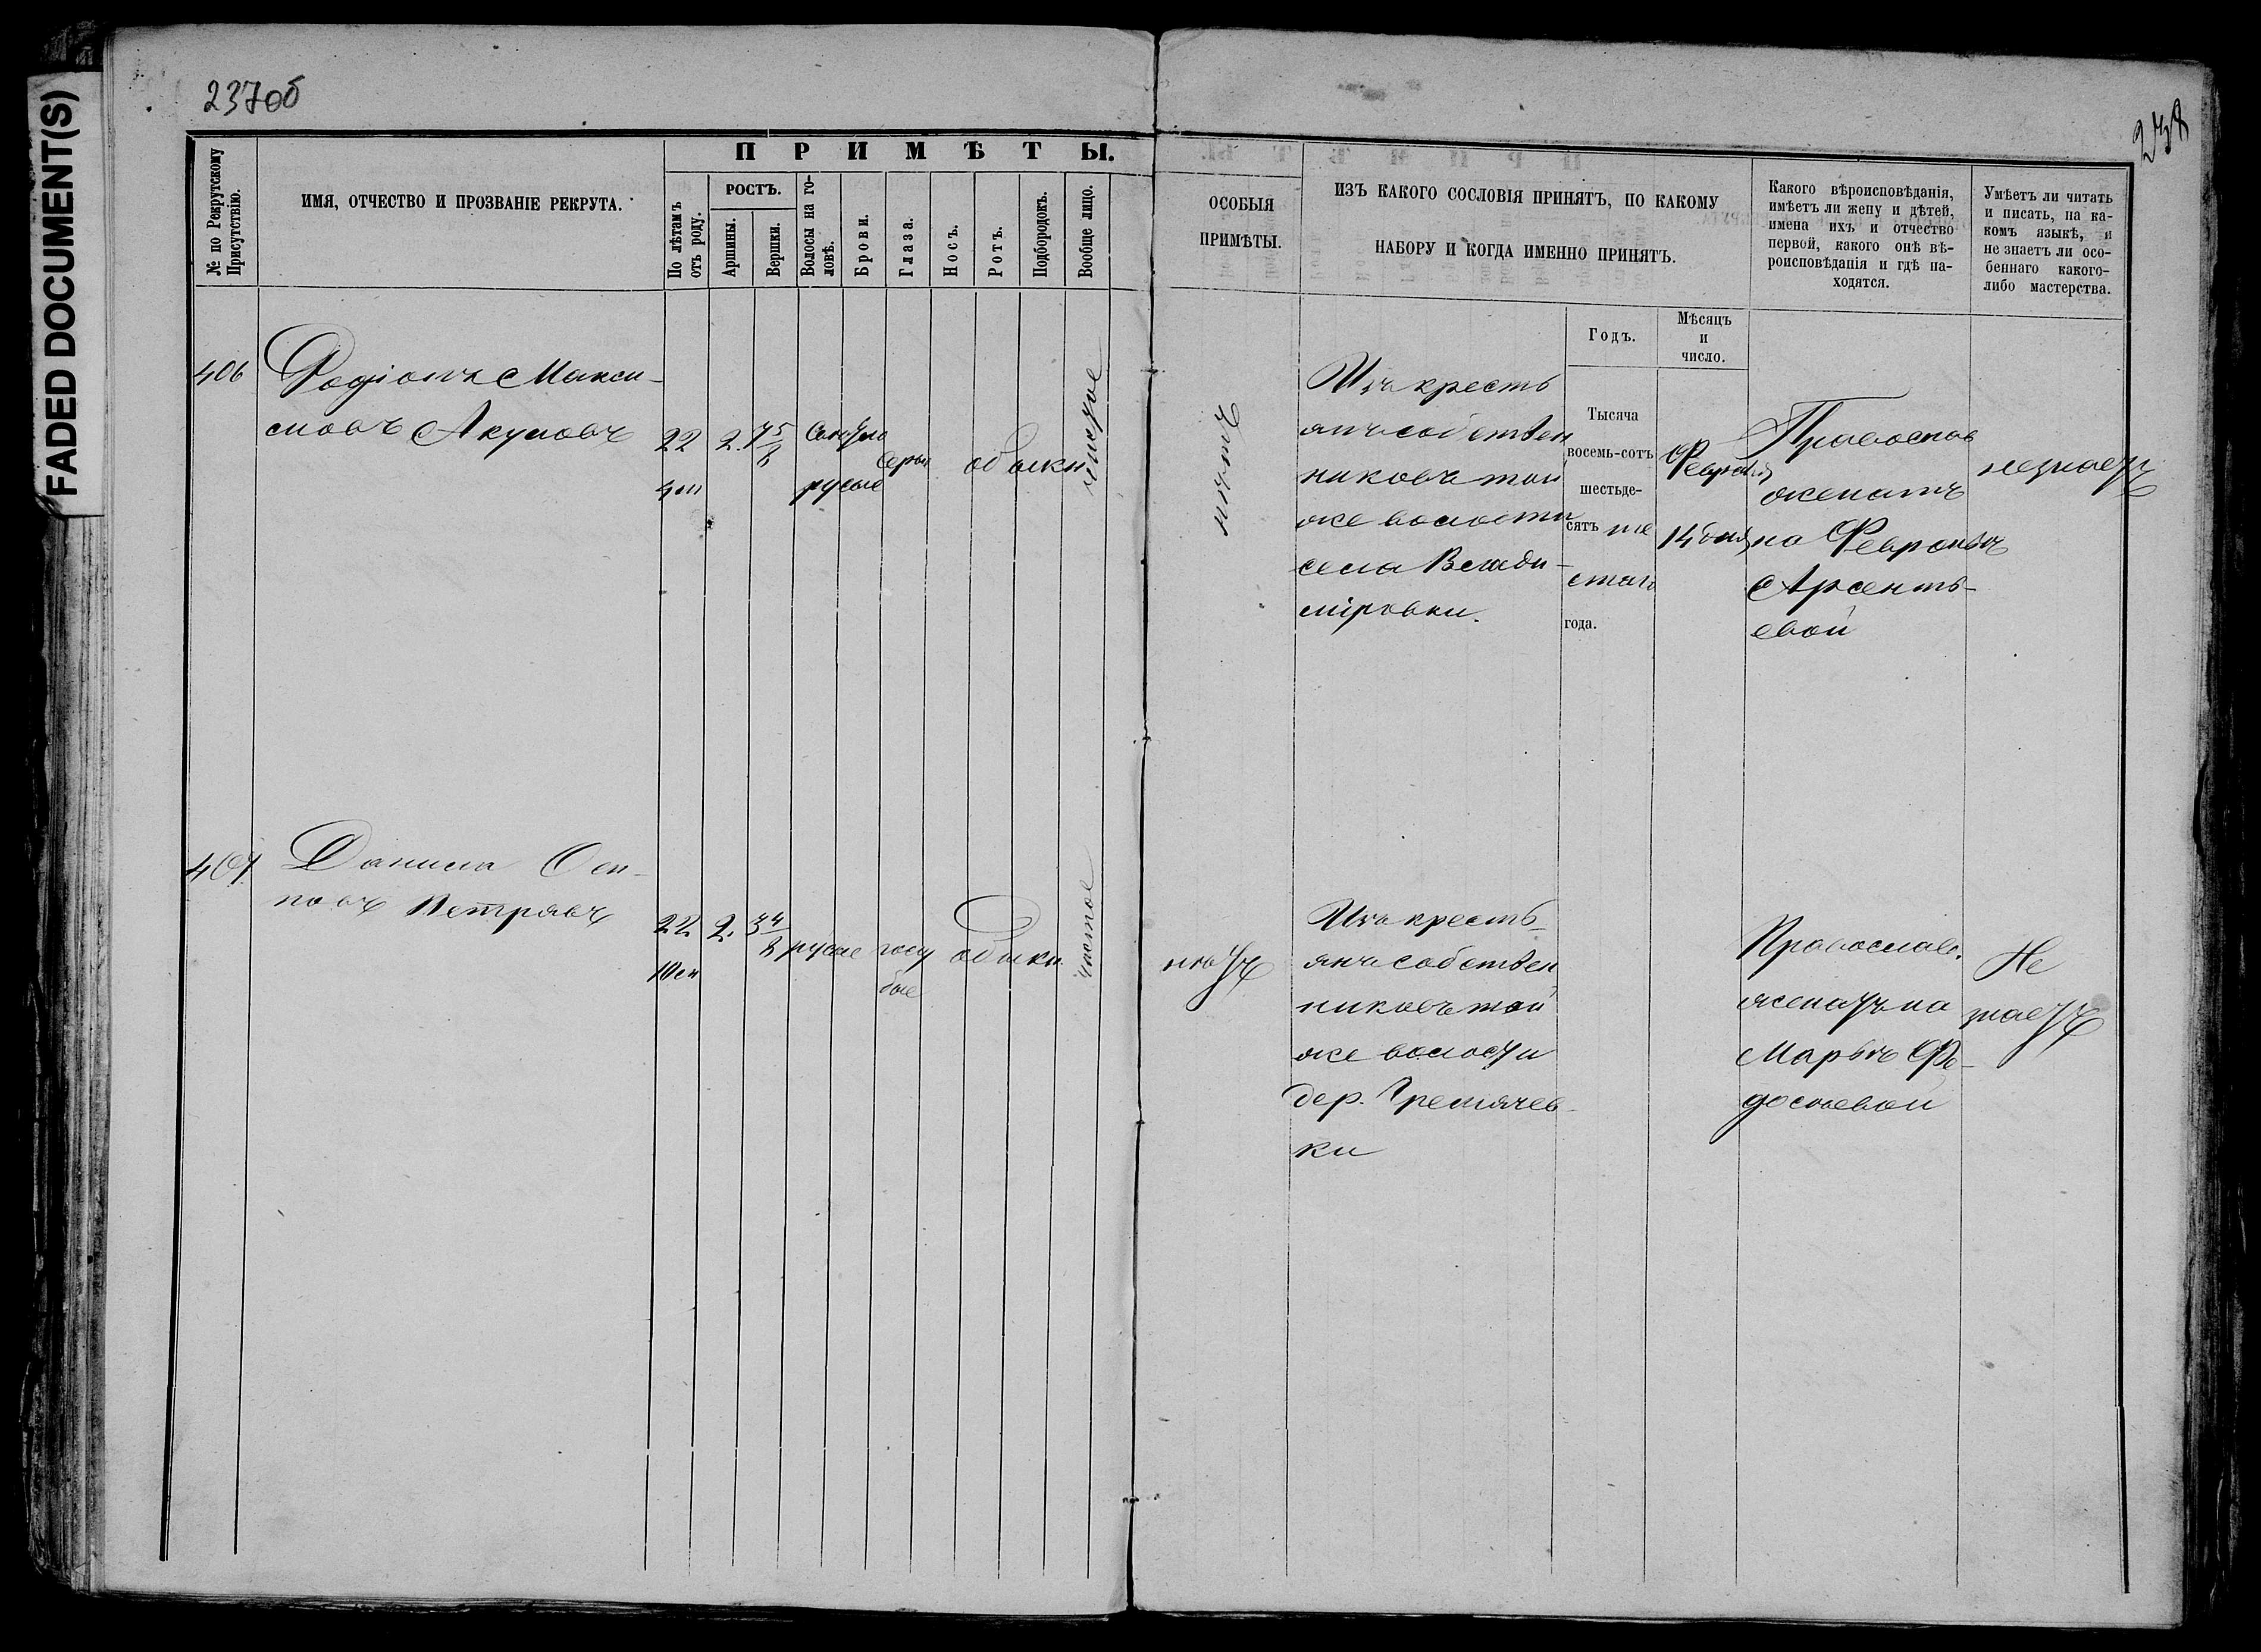 FADED DOCUMENT(S)
237об
238
№ по Рекрутскому Присутствію.
ИМЯ, ОТЧЕСТВО И ПРОЗВАНІЕ РЕКРУТА.
ПРИМѢТЫ.
По лѣтамъ отъ роду.
РОСТЪ.
Аршины.
Вершки.
Волосы на головѣ.
Брови.
Глаза.
Носъ.
Ротъ.
Подбородокъ.
Вообще лицо.
ОСОБЫЯ
ПРИМѢТЫ.
ИЗЪ КАКОГО СОСЛОВІЯ ПРИНЯТЪ, ПО КАКОМУ
НАБОРУ И КОГДА ИМЕННО ПРИНЯТЪ.
Годъ.
Мѣсяцъ
и
число.
Какого вѣроисповѣданія,
имѣетъ ли жену и дѣтей,
имена ихъ и отчество
первой, какого онѣ вѣ-
роисповѣданія и гдѣ на-
ходятся.
Умѣетъ ли читать
и писать, на ка-
комъ языкѣ, и
не знаетъ ли осо-
беннаго какого-
либо мастерства.
406
Родіонъ Макси-
мовъ Акумовъ
22
4 м
2.
7 5/8
русые
серы
обыкн
чистое
нѣтъ
Изъ кресть
янъ собствен
никовъ той
же волости
села Влади-
міровки.
Тысяча
восемь-сотъ
шестьде-
сятъ ше
стаго
года.
Февраля
14 дня
Православ
женатъ
на Февроньѣ
Арсенть-
евой
незнаетъ
407
Данила Оси-
повъ Петровъ
22
10 м
2.
3 4/8
русые
голу
бые
обыкн.
чистое
нѣтъ
Изъ кресть-
янъ собствен
никовъ той
же волости
дер. Гремячев-
ки
Православ.
женатъ на
Марьѣ Фе-
досѣевой
Не
знаетъ